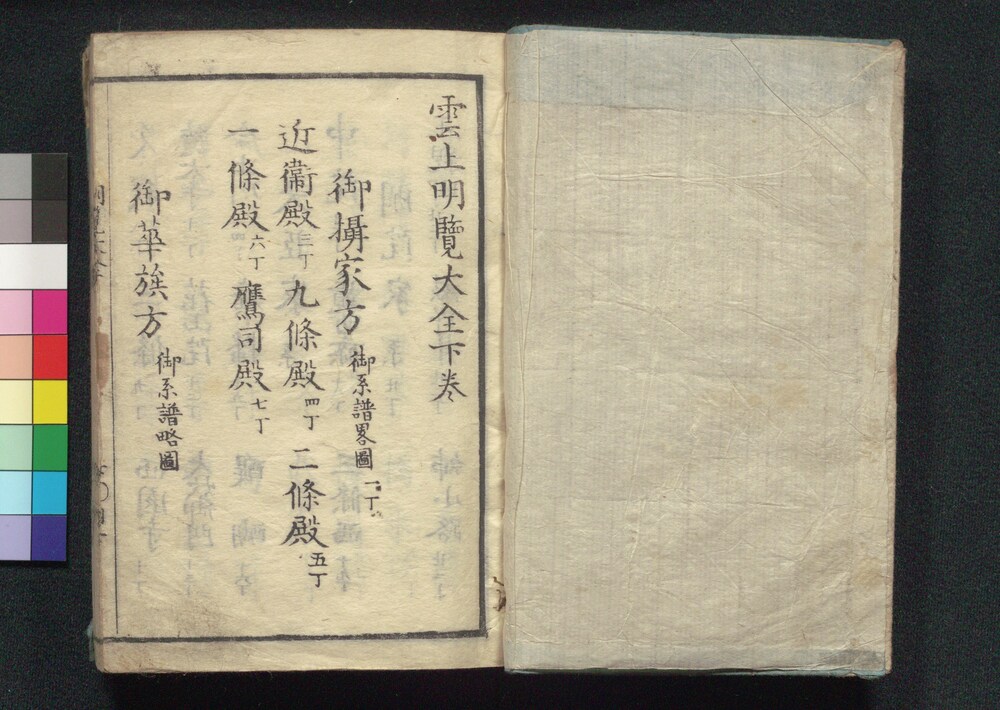 雲上明覽大全下巻
御攝家方 御系譜畧圖 一丁
近衞殿 二丁 九條殿 四丁 二條殿 五丁
一條殿 六丁 鷹司殿 七丁
御華族方 御系譜略圖